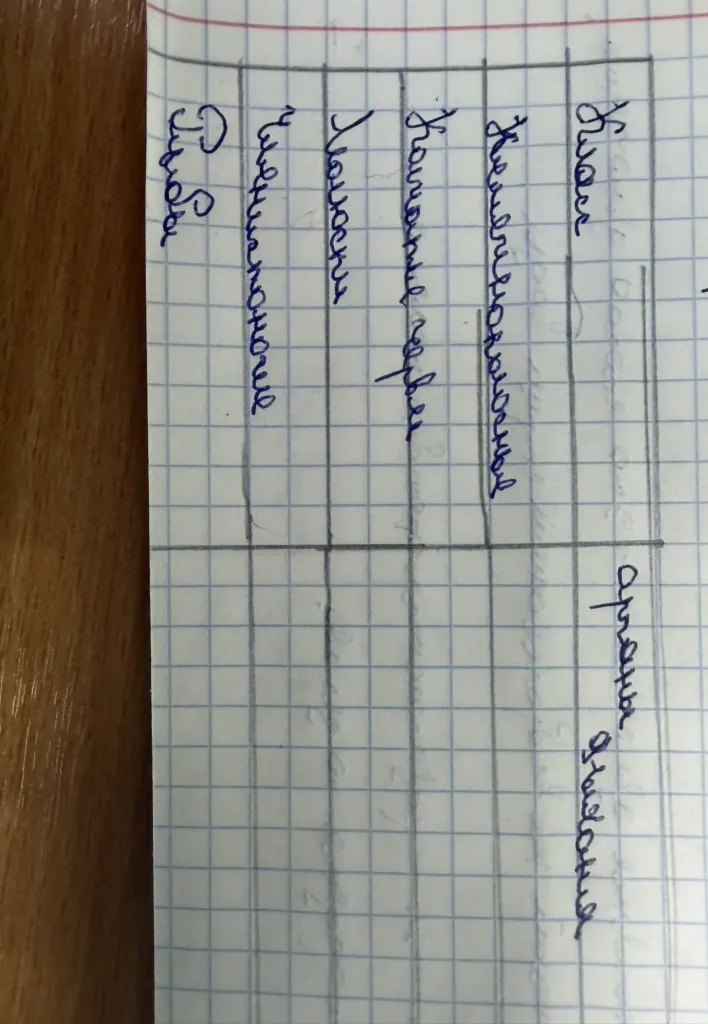 Класс
органы дыхания
Кишечнополостные
Кольчатые черви
Молюски
Членистоногие
Рыбы